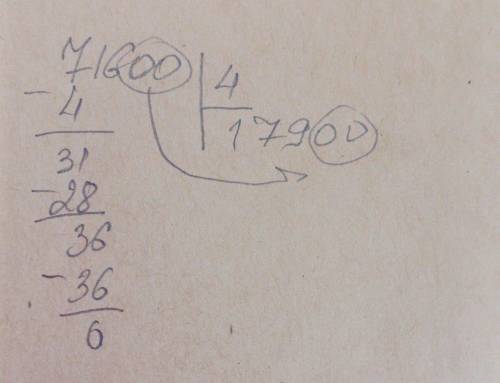 71600 4
- 4 17900
31
- 28
36
- 36
0